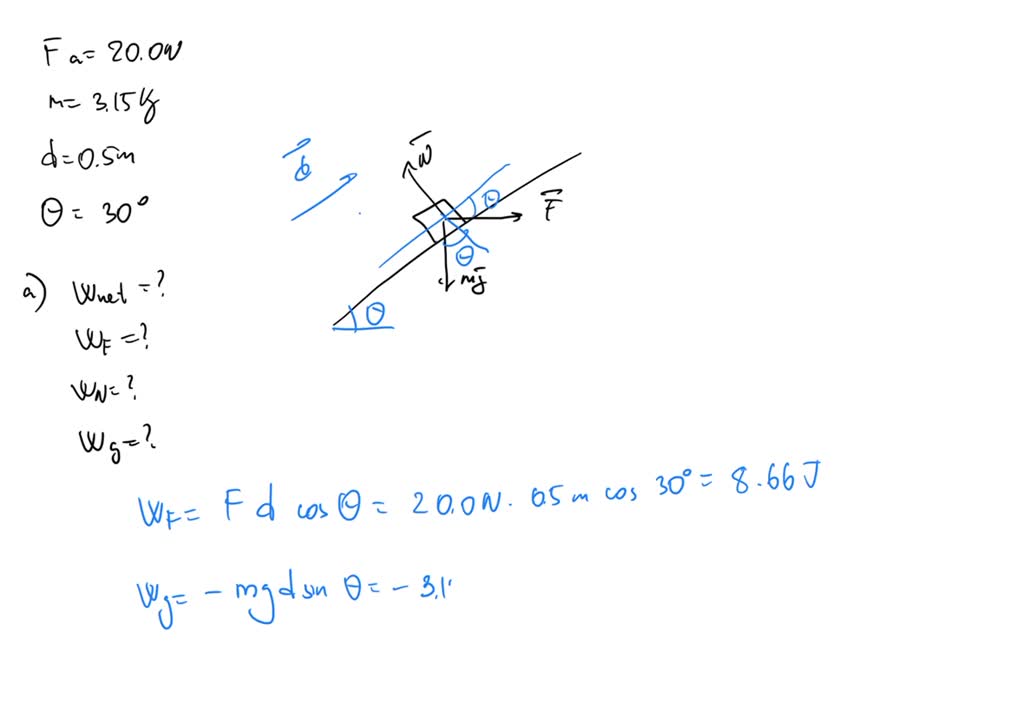 F̄ a = 20.0N
m = 3.15 kg
d = 0.5m
θ = 30°
d̄
N̄
θ
F̄
θ
mḡ
θ
a) Wnet = ?
WF = ?
WN = ?
Wg = ?
WF = F d cos θ = 20.0N · 0.5 m cos 30° = 8.66 J
Wg = - mg d sin θ = - 3.1